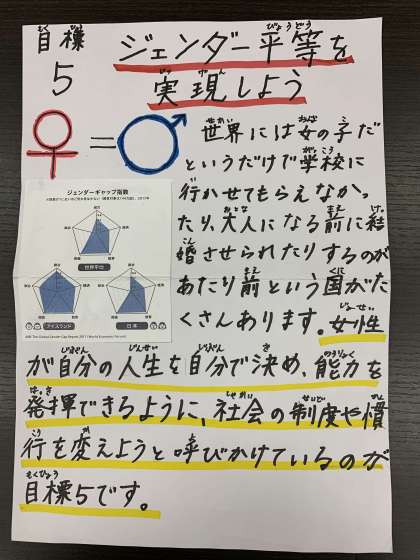 目標 ジェンダー平等を
5 実現しよう
世界には女の子だ
というだけで学校に
行かせてもらえなかっ
たり、大人になる前に結
婚させられたりするのが
あたり前という国がた
くさんあります。女性
が自分の人生を自分で決め、能力を
発揮できるように、社会の制度や慣
行を変えようと呼びかけているのが
目標5です。
ジェンダーギャップ指数
世界平均
アイスランド
日本